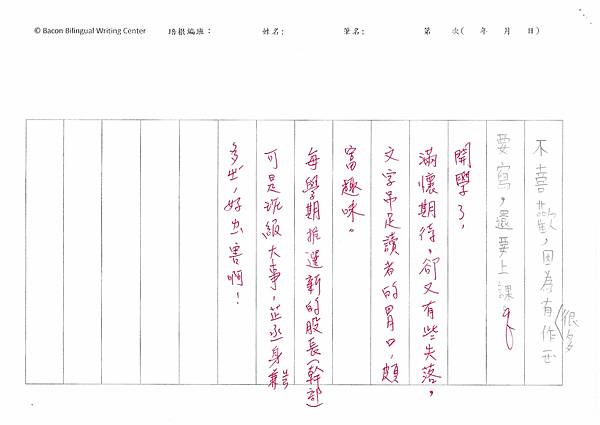 © Bacon Bilingual Writing Center 培根編班： 姓名： 筆名： 第 次( 年 月 日)
不喜歡，因為有很多作業
要寫，還要上課
開學了，
滿懷期待，卻又有些失落，
文字吊足讀者的胃口，頗
富趣味。
每學期推選新的股長(幹部)
可是班級大事，芷丞身兼
多職，好厲害啊！